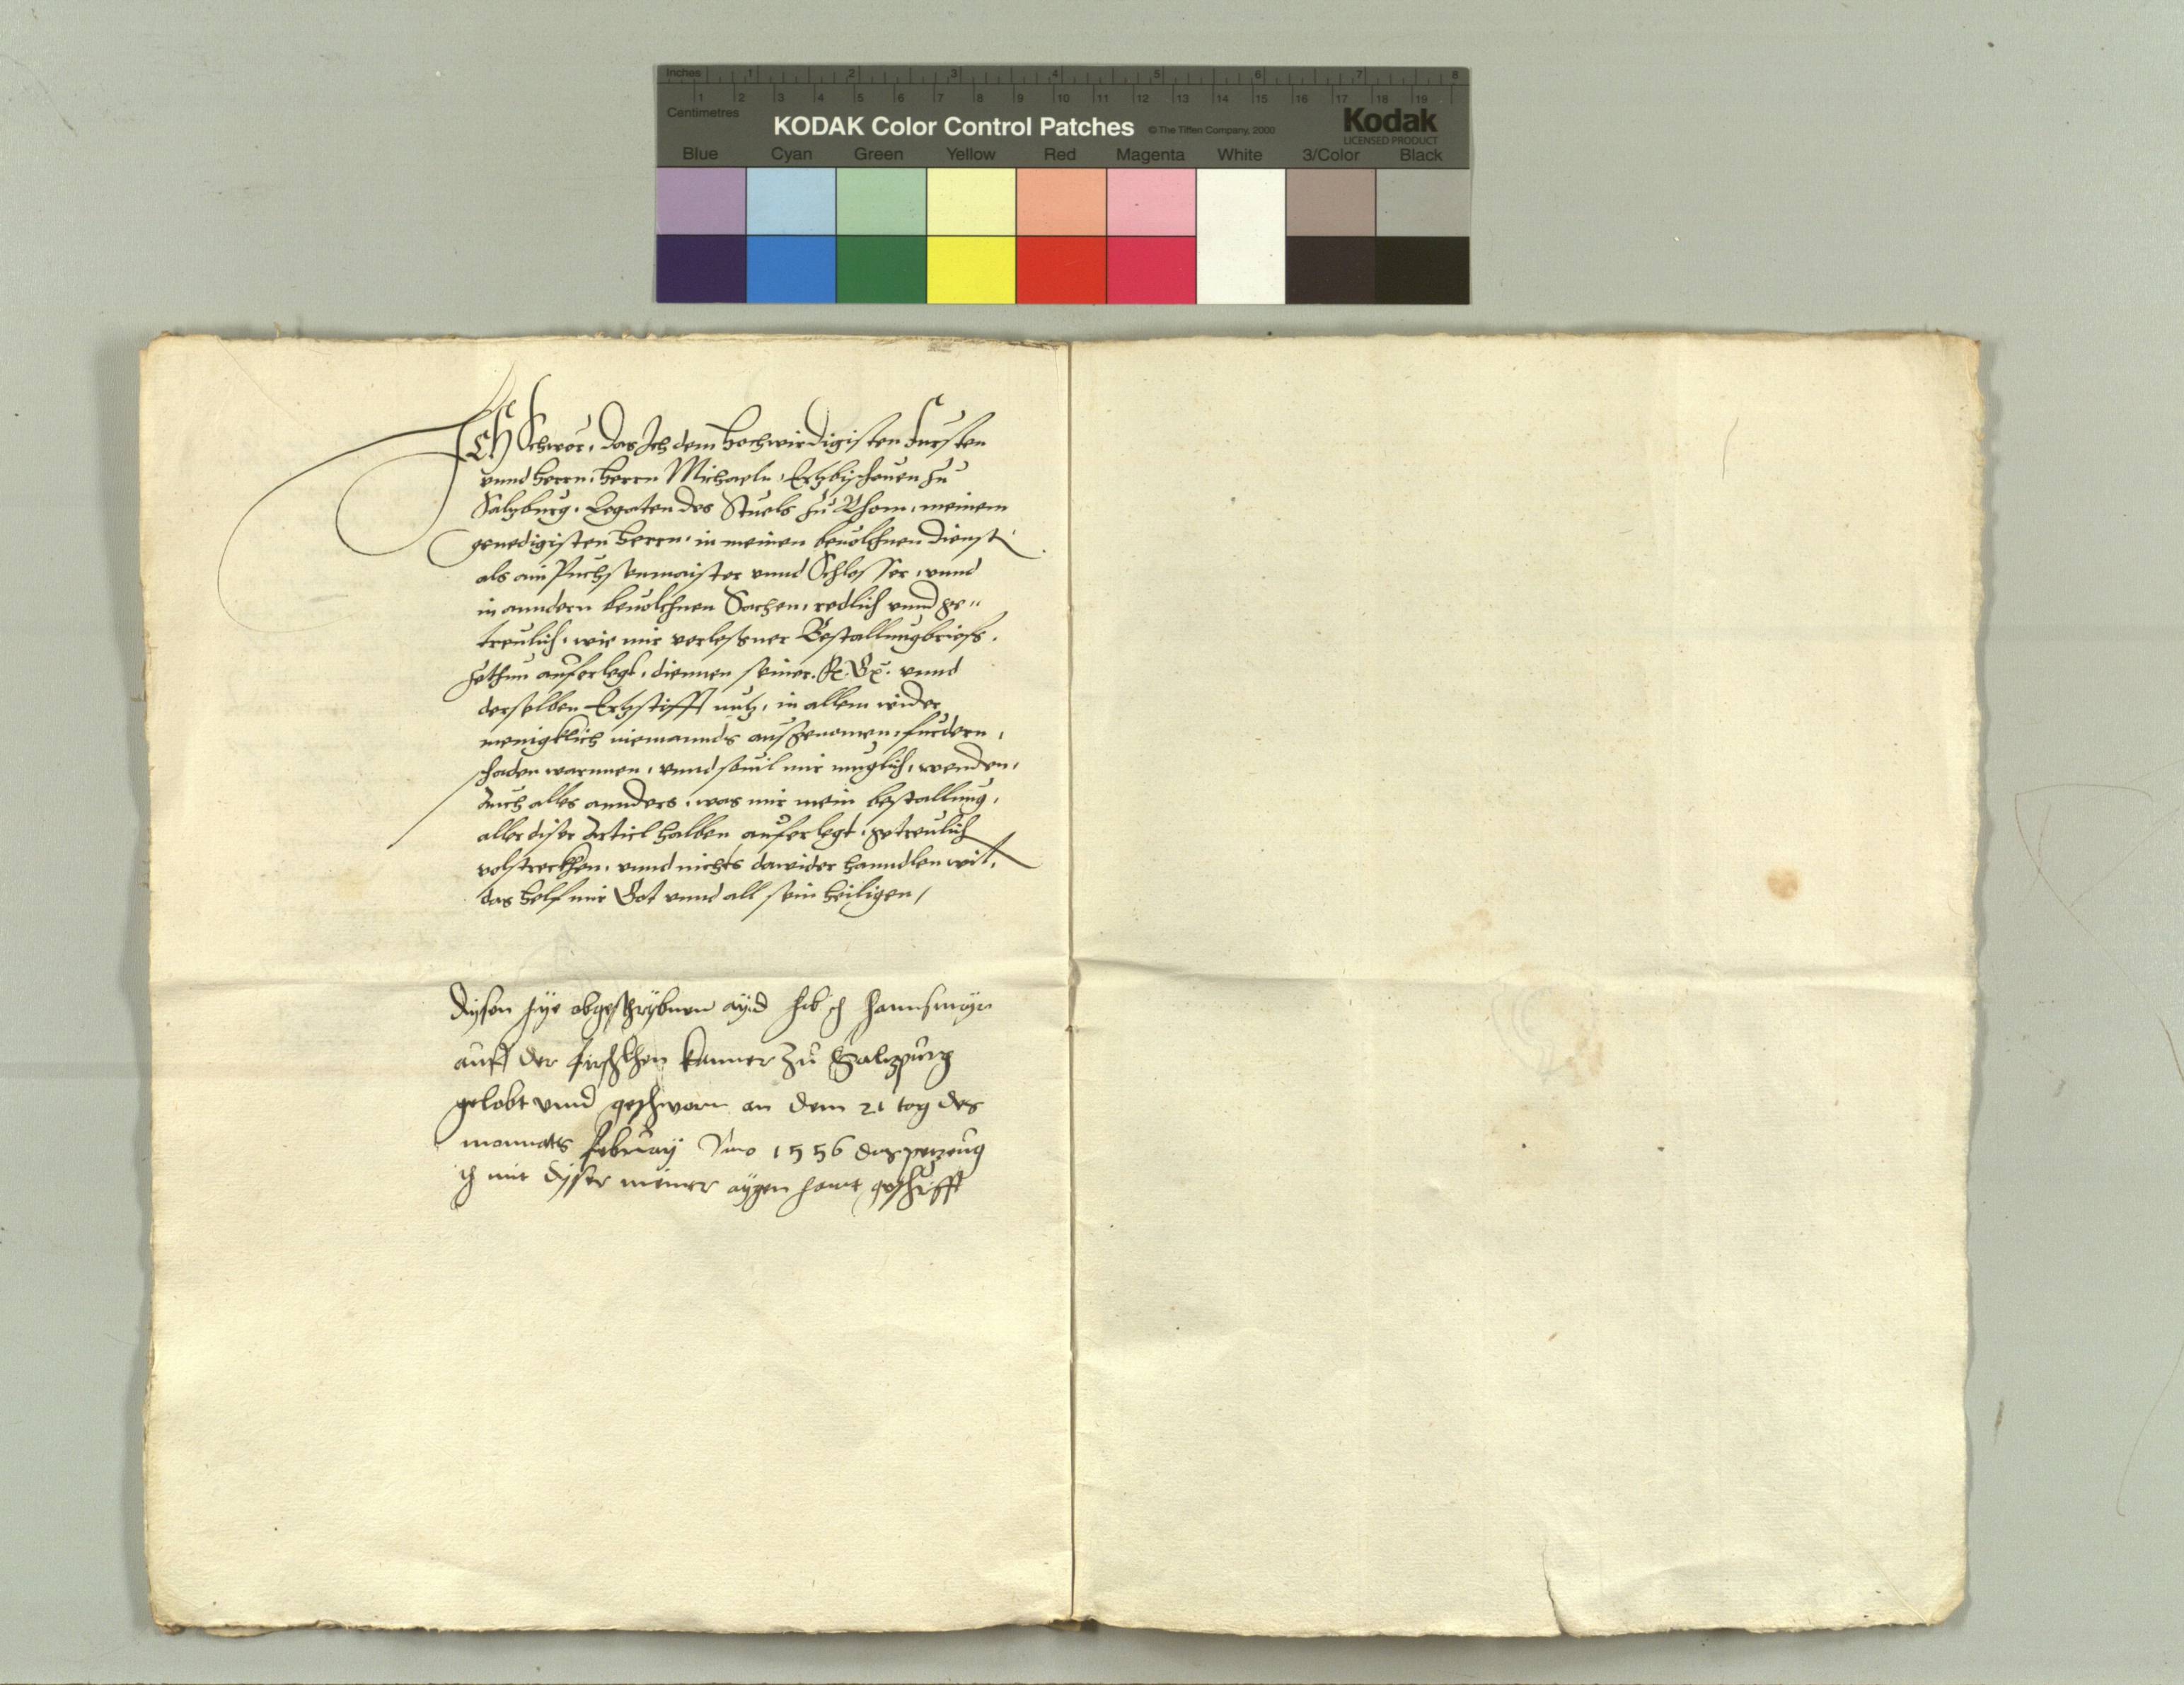 Inches 1 2 3 4 5 6 7 8
1 2 3 4 5 6 7 8 9 10 11 12 13 14 15 16 17 18 19
Centimetres
KODAK Color Control Patches © The Tiffen Company, 2000 Kodak
LICENSED PRODUCT
Blue Cyan Green Yellow Red Magenta White 3/Color Black
ICH Schwör, das Ich dem hochwirdigisten Fursten
vnnd herrn, herrn Michaeln, Ertzbischouen zu
Saltzburg, Legaten des Stuels zu Rhom, meinem
genedigisten herrn, in meinen beuolchnen dienst
als ain Puchsenmaister vnnd Schlosser, vnnd
in anndern beuolchnen Sachen, redlich vnnd ge"
treulich, wie mir verlesner Bestallungbriefs,
zethun auferlegt, diennen seiner F. G. vnnd
derselben Ertzstifft nutz, in allem wider
menigklich niemannds ausgenomen, furdern,
schaden warnnen, vnnd souil mir muglich, wenden,
Auch alles annders, was mir mein bestallung,
aller diser Articl halben auferlegt, getreulich
volstreckhen, vnnd nichts dawider hanndlen wil,
das helf mir Got vnnd all sein heiligen /
dysen hye obgeschrybnen ayd hab ich hannsmayr
auff der furstlichen kamer zu Saltzpurg
gelobt vnnd geschworn an dem 21 tag des
monnats february Anno 1556 das petzeug
ich mit dyser meiner aygen hant geschrifft